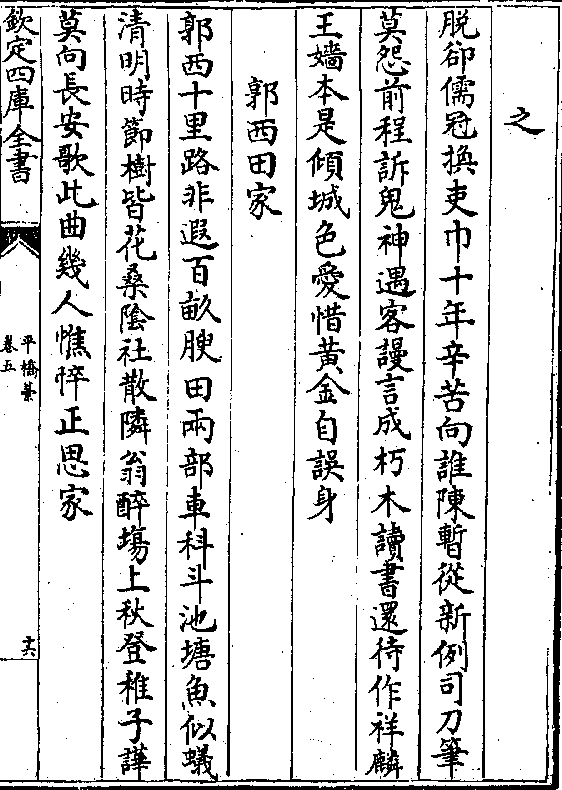 之
脱卻儒冠換吏巾十年辛苦向誰陳暫從新例司刀筆
莫怨前程訴鬼神遇客謾言成朽木讀書還待作祥麟
王嬙本是傾城色愛惜黃金自誤身
郭西田家
郭西十里路非遐百畝腴田兩部車科斗池塘魚似蟻
清明時節樹皆花桑陰社散隣翁醉塲上秋登稚子譁
莫向長安歌此曲幾人憔悴正思家
欽定四庫全書
平橋藁
卷五
十六